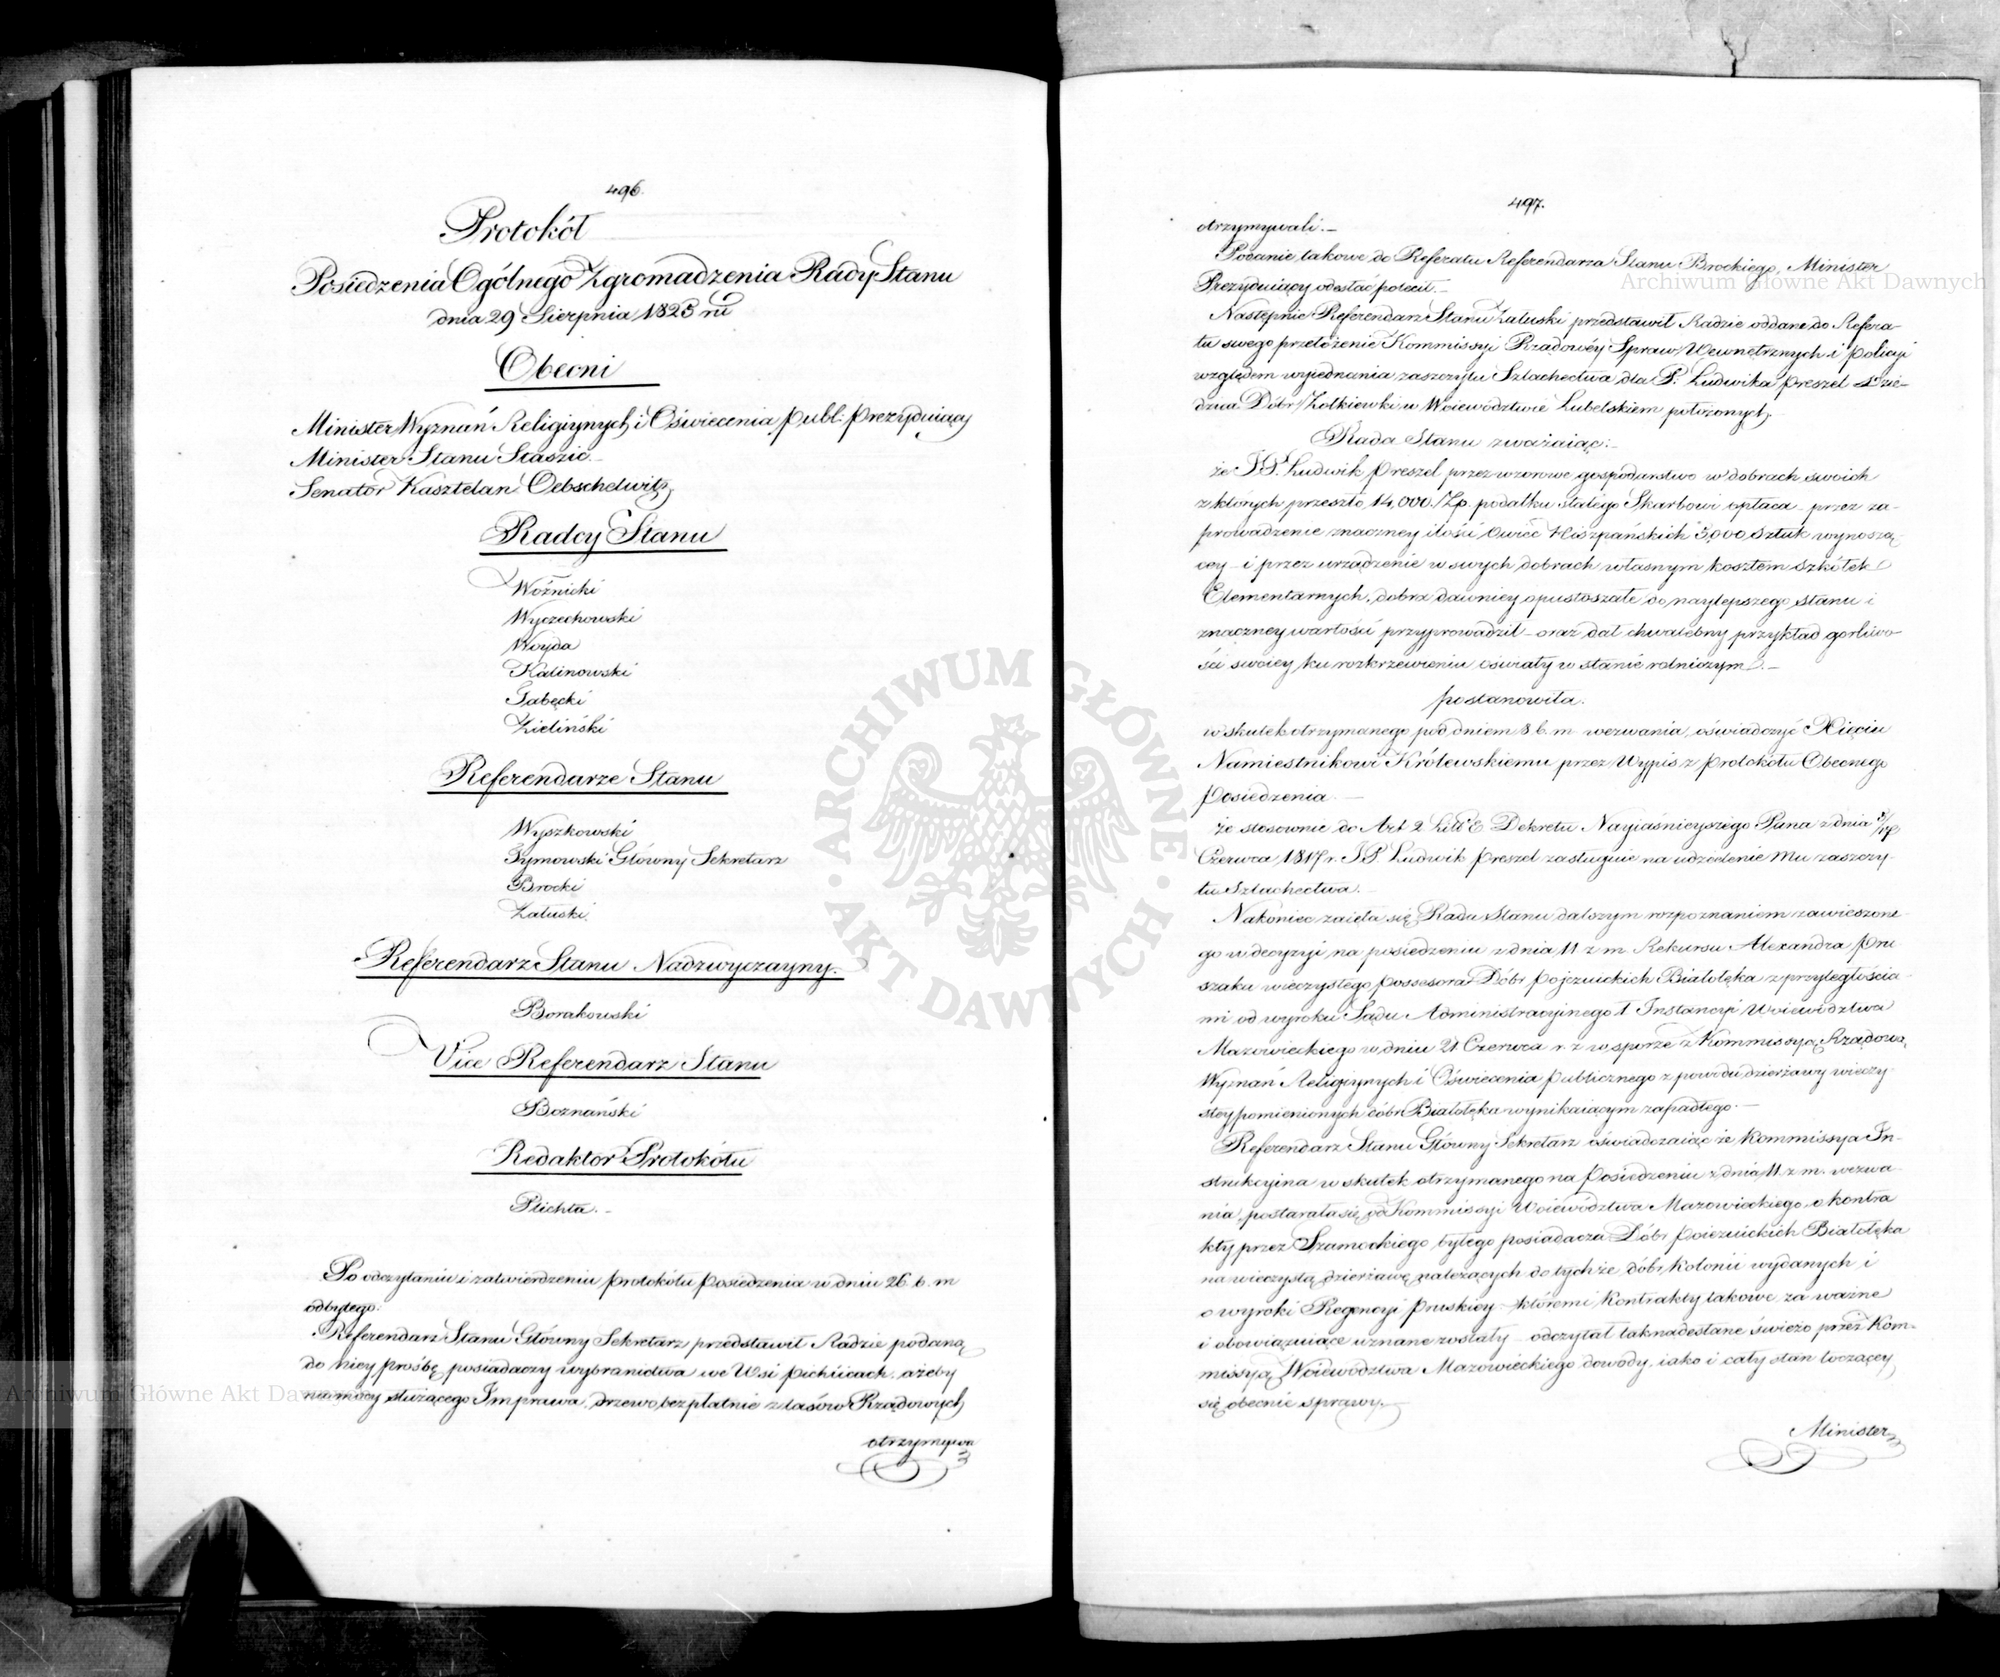 496.
Protokół
Posiedzenia Ogólnego Zgromadzenia Rady Stanu
dnia 29 Sierpnia 1823 ru
Obecni
Minister Wyznań Religiynych i Oświecenia Publ: Prezyduiący
Minister Stanu Staszic.
Senator Kasztelan Oebschelwitz
Radcy Stanu
Woźnicki
Wyczechowski
Woyda
Kalinowski
Gąbecki
Zieliński
Referendarze Stanu
Wyszkowski
Tymowski Główny Sekretarz
Brocki
Załuski
Referendarz Stanu Nadzwyczayny.
Borakowski
Vice Referendarz Stanu
Boznański
Redaktor Protokółu
Plichta.
Po odczytaniu i zatwierdzeniu Protokółu Posiedzenia w dniu 26. b. m
odbytego:
Referendarz Stanu Główny Sekretarz przedstawił Radzie podaną
do niey prośbę posiadaczy wybranictwa we Wsi, ażeby
na mocy służącego Im prawa, drzewo bezpłatnie z lasów Rządowych
otrzymywa
497.
otrzymywali.
Podanie takowe do Referatu Referendarza Stanu Brockiego, Minister
Prezyduiący odesłać polecił.
Następnie Referendarz Stanu Załuski przedstawił Radzie oddane do Refera-
tu swego przełożenie Kommissyi Rządowéy Spraw Wewnętrznych i Policyi
względem wyiednania zaszczytu Szlachectwa dla P. Ludwika Preszel Dzie-
dzica Dóbr Żółkiewki w Woiewództwie Lubelskiem położonych
Rada Stanu zważaiąc:
że J.P. Ludwik Preszel przez wzorowe gospodarstwo w dobrach swoich
z których przeszło 14,000. Zp. podatku stałego Skarbowi opłaca - przez za-
prowadzenie znaczney ilości Owiec Hiszpańskich 3,000 sztuk wynoszą-
cey - i przez urządzenie w swych dobrach własnym kosztem Szkółek
Elementarnych, dobra dawniey opustoszałe do naylepszego stanu i
znaczney wartości przyprowadził - oraz dał chwalebny przykład gorliwo-
ści swoiey ku rozkrzewieniu oświaty w stanie rolniczym.
postanowiła.
w skutek otrzymanego pod dniem 8 b. m wezwania, oświadczyć Xięciu
Namiestnikowi Królewskiemu przez Wypis z Protokółu Obecnego
Posiedzenia.
że stosownie do Art 2 Litt E Dekretu Nayiaśnieyszego Pana z dnia 3/17
Czerwca 1817 r. J.P Ludwik Preszel zasługuie na udzielenie Mu zaszczy-
tu Szlachectwa.
Nakoniec zaięła się Rada Stanu dalszym rozpoznaniem zawieszone-
go w decyzyi na posiedzeniu z dnia 11 z m. Rekursu Alexandra Pru
szaka wieczystego possesora Dóbr Pojezuickich Białołęka z przyległościa-
mi od wyroku Sądu Administracyinego 1 Instancyi Woiewództwa
Mazowieckiego w dniu 21 Czerwca r. z w sporze z Kommissyą Rządową
Wyznań Religiynych i Oświecenia Publicznego z powodu dzierżawy wieczy-
stey pomienionych dóbr Białołęka wynikaiącym zapadłego.
Referendarz Stanu Główny Sekretarz oświadczaiąc że Kommissya In-
strukcyina w skutek otrzymanego na Posiedzeniu z dnia 11. z m. wezwa-
nia, postarała się od Kommissyi Woiewództwa Mazowieckiego, o kontra
kty przez Szamockiego byłego posiadacza Dóbr Poiezuickich Białołęka
na wieczystą dzierżawę należących do tychże dóbr, Kolonii wydanych i
o wyroki Regencyi Pruskiey - któremi Kontrakty takowe za ważne
i obowiązuiące uznane zostały - odczytał tak nadesłane świeżo przez Kom-
missyą Woiewództwa Mazowieckiego dowody, iako i cały stan toczącey
się obecnie sprawy.
Minister
Archiwum Główne Akt Dawnych
Archiwum Główne Akt Dawnych
ARCHIWUM GŁÓWNE
AKT DAWNYCH